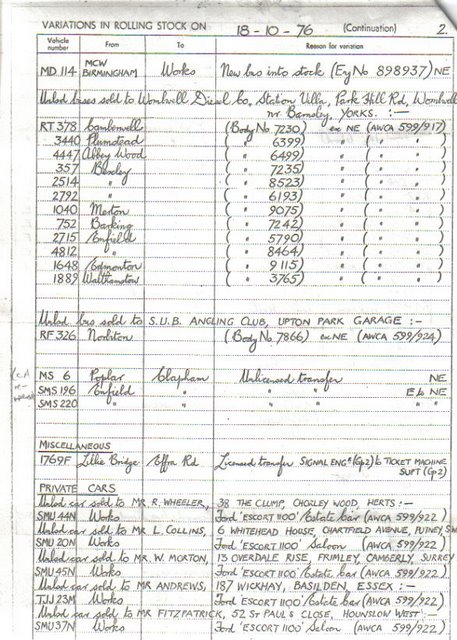 VARIATIONS IN ROLLING STOCK ON 18-10-76 (Continuation) 2.
Vehicle number From To Reason for variation
MD 114 MCW BIRMINGHAM Works New bus into stock (Eng No 898937) NE
Unlcd buses sold to Wombwell Diesel Co, Station Villa, Park Hill Rd, Wombwell
nr Barnsley, YORKS. :—
RT 378 Camberwell (Body No 7230) ex NE (AWCA 599/917)
3440 Plumstead ( " 6399) " ( " " )
4447 Abbey Wood ( " 6499) " ( " " )
357 Bexley ( " 7235) " ( " " )
2514 " ( " 8523) " ( " " )
2792 " ( " 6193) " ( " " )
1040 Merton ( " 9075) " ( " " )
752 Barking ( " 7242) " ( " " )
2715 Enfield ( " 5790) " ( " " )
4812 " ( " 8464) " ( " " )
1648 Edmonton ( " 9115) " ( " " )
1889 Walthamstow ( " 3765) " ( " " )
Unlcd bus sold to S.U.B. ANGLING CLUB, UPTON PARK GARAGE :—
RF 326 Norbiton (Body No 7866) ex NE (AWCA 599/924)
MS 6 Poplar Clapham Unlicensed transfer NE
SMS 196 Enfield " " " E to NE
SMS 220 " " " " "
MISCELLANEOUS
1769F Lillie Bridge Effra Rd Licensed transfer SIGNAL ENGR (Gp2) to TICKET MACHINE
SUPT (Gp2)
PRIVATE CARS
Unlcd car sold to MR R. WHEELER, 38 THE CLUMP, CHORLEY WOOD, HERTS :—
SMU 44N Works Ford 'ESCORT 1100' Estate Car (AWCA 599/922)
Unlcd car sold to MR L. COLLINS, 6 WHITEHEAD HOUSE, CHARTFIELD AVENUE, PUTNEY
SMU 20N Works Ford 'ESCORT 1100' Saloon (AWCA 599/922)
Unlcd car sold to MR. W. MORTON, 13 OVERDALE RISE, FRIMLEY, CAMBERLY, SURREY
SMU 45N Works Ford 'ESCORT 1100' Estate Car (AWCA 599/922)
Unlcd car sold to MR ANDREWS, 187 WICKHAY, BASILDEN ESSEX :—
TJJ 23M Works Ford ESCORT 1100 / Estate Car (AWCA 599/922)
Unlcd car sold to MR FITZPATRICK, 52 ST PAULS CLOSE, HOUNSLOW WEST :—
SMU 37N Works Ford 'ESCORT 1100' Saloon (AWCA 599/922)